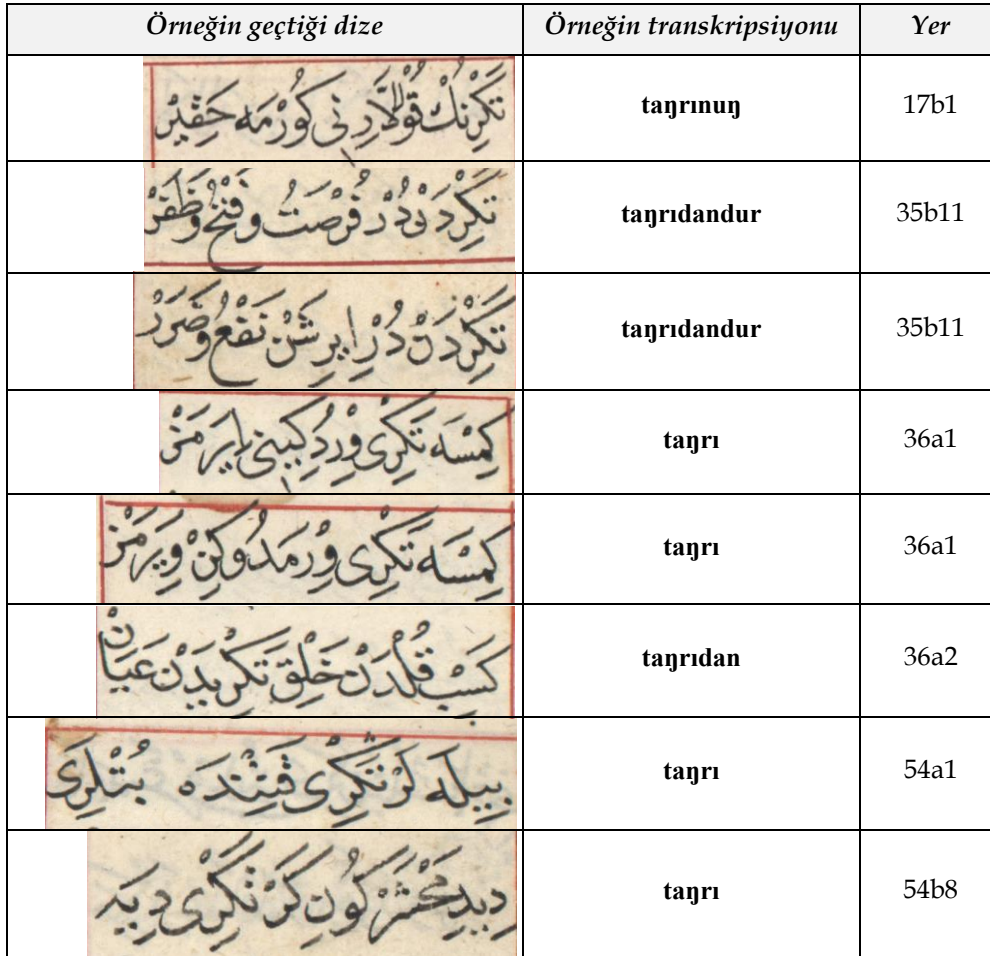 Örneğin geçtiği dize Örneğin transkripsiyonu Yer
تَكْرِنُكْ قُوْللَارِنِى كُورْمَه حَقِيرْ taŋrınuŋ 17b1
تَكْرِدَنْدُرْ فُرْصَتُ وفَتْحُ وظَفَرْ taŋrıdandur 35b11
تَكْرِدَنْ دُرْ ايرِشَنْ نَفْعُ وضَرَرْ taŋrıdandur 35b11
كِمْسَه تَكْرِى وِرْدِكِينِى ايرَمَزْ taŋrı 36a1
كِمْسَه تَكْرِى وِرْمَدُوكِنْ وِيرَمَزْ taŋrı 36a1
كَسْبْ قُلْدَنْ خَلْقْ تَكْرِيدَنْ عَيَانْ taŋrıdan 36a2
بِيلَه لَرْ تَكْرِى قَتِنْدَه بُتْلَرِى taŋrı 54a1
دِيدِ مَحْشَرْ كُونِ كَرْ تَكْرِى دِيَه taŋrı 54b8